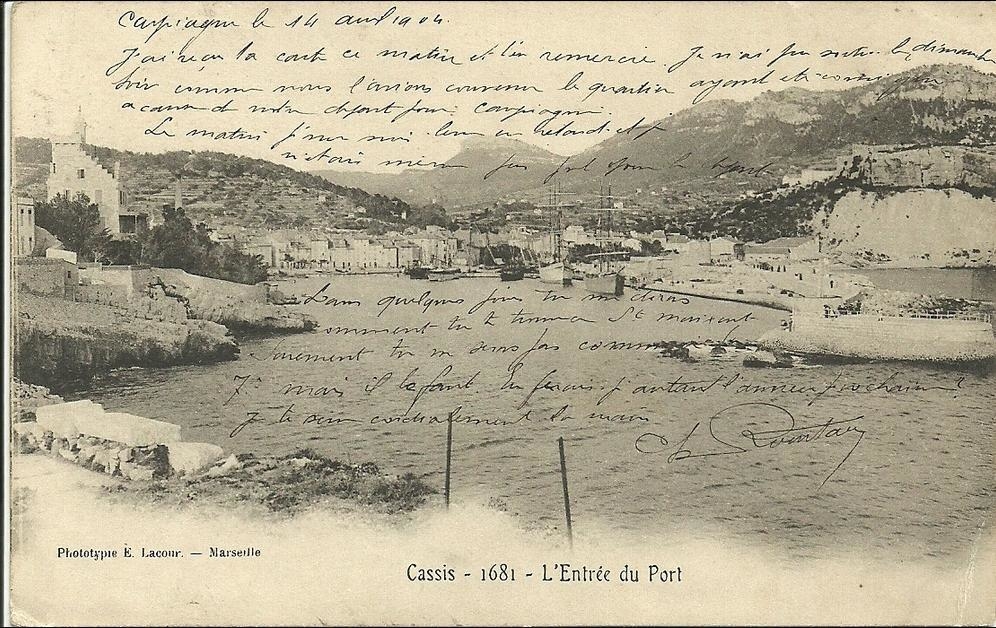 Carpiagne le 14 avril 1904.
J'ai reçu ta carte ce matin et t'en remercie. Je n'ai pu sortir le dimanche
soir comme nous l'avions convenu le quartier ayant été consigné
a cause de notre depart pour Carpiagne
Le matin j'
n'etais même pas
Dans quelques jours tu me diras
comment tu te trouves St maixent
surement tu ne seras pas comme
7e mais il le faut tu ferais d'autant l'année prochaine?
Je te serre cordialement la main
Phototypie E. Lacour. — Marseille
Cassis - 1681 - L'Entrée du Port